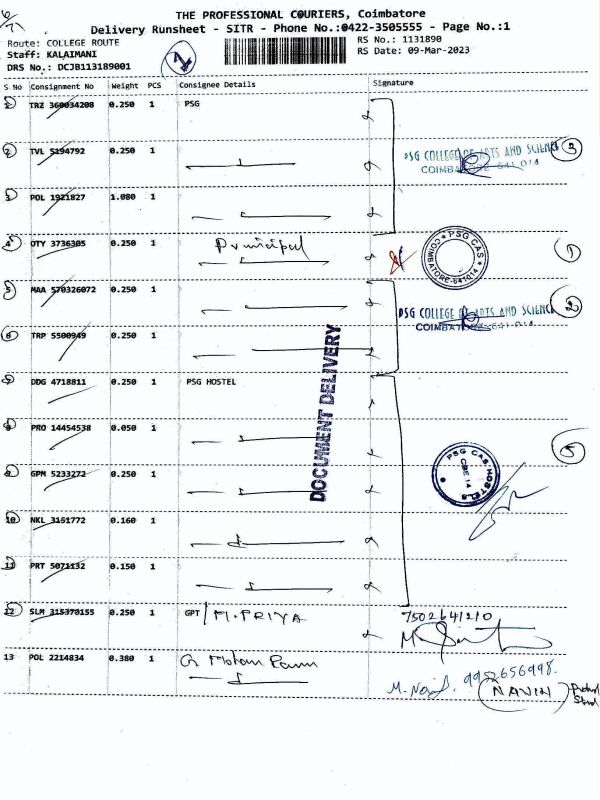 6/7
THE PROFESSIONAL COURIERS, Coimbatore
Delivery Runsheet - SITR - Phone No.:0422-3505555 - Page No.:1
Route: COLLEGE ROUTE
RS No.: 1131890
Staff: KALAIMANI
RS Date: 09-Mar-2023
DRS No.: DCJB113189001
S No Consignment No Weight PCS Consignee Details Signature
1 TRZ 360034208 0.250 1 PSG
2 TVL 5194792 0.250 1
PSG COLLEGE OF ARTS AND SCIENCE 3
COIMBATORE-641 014
3 POL 1921827 1.080 1
4 OTY 3736305 0.250 1 Principal
PSG CAS COIMBATORE-641014 1
5 MAA 570326072 0.250 1
PSG COLLEGE OF ARTS AND SCIENCE 2
COIMBATORE-641 014
6 TRP 5500949 0.250 1
DOCUMENT DELIVERY
7 DDG 4718811 0.250 1 PSG HOSTEL
8 PRO 14454538 0.050 1
5
9 GPM 5233272 0.250 1
PSG CAS HOSTELS CBE 14
10 NKL 3151772 0.160 1
11 PRT 5071132 0.150 1
12 SLM 315370155 0.250 1 GPT / M.PRIYA 7502641210
13 POL 2214834 0.380 1 G Mohan Ram
9952656998.
(NAVIN)